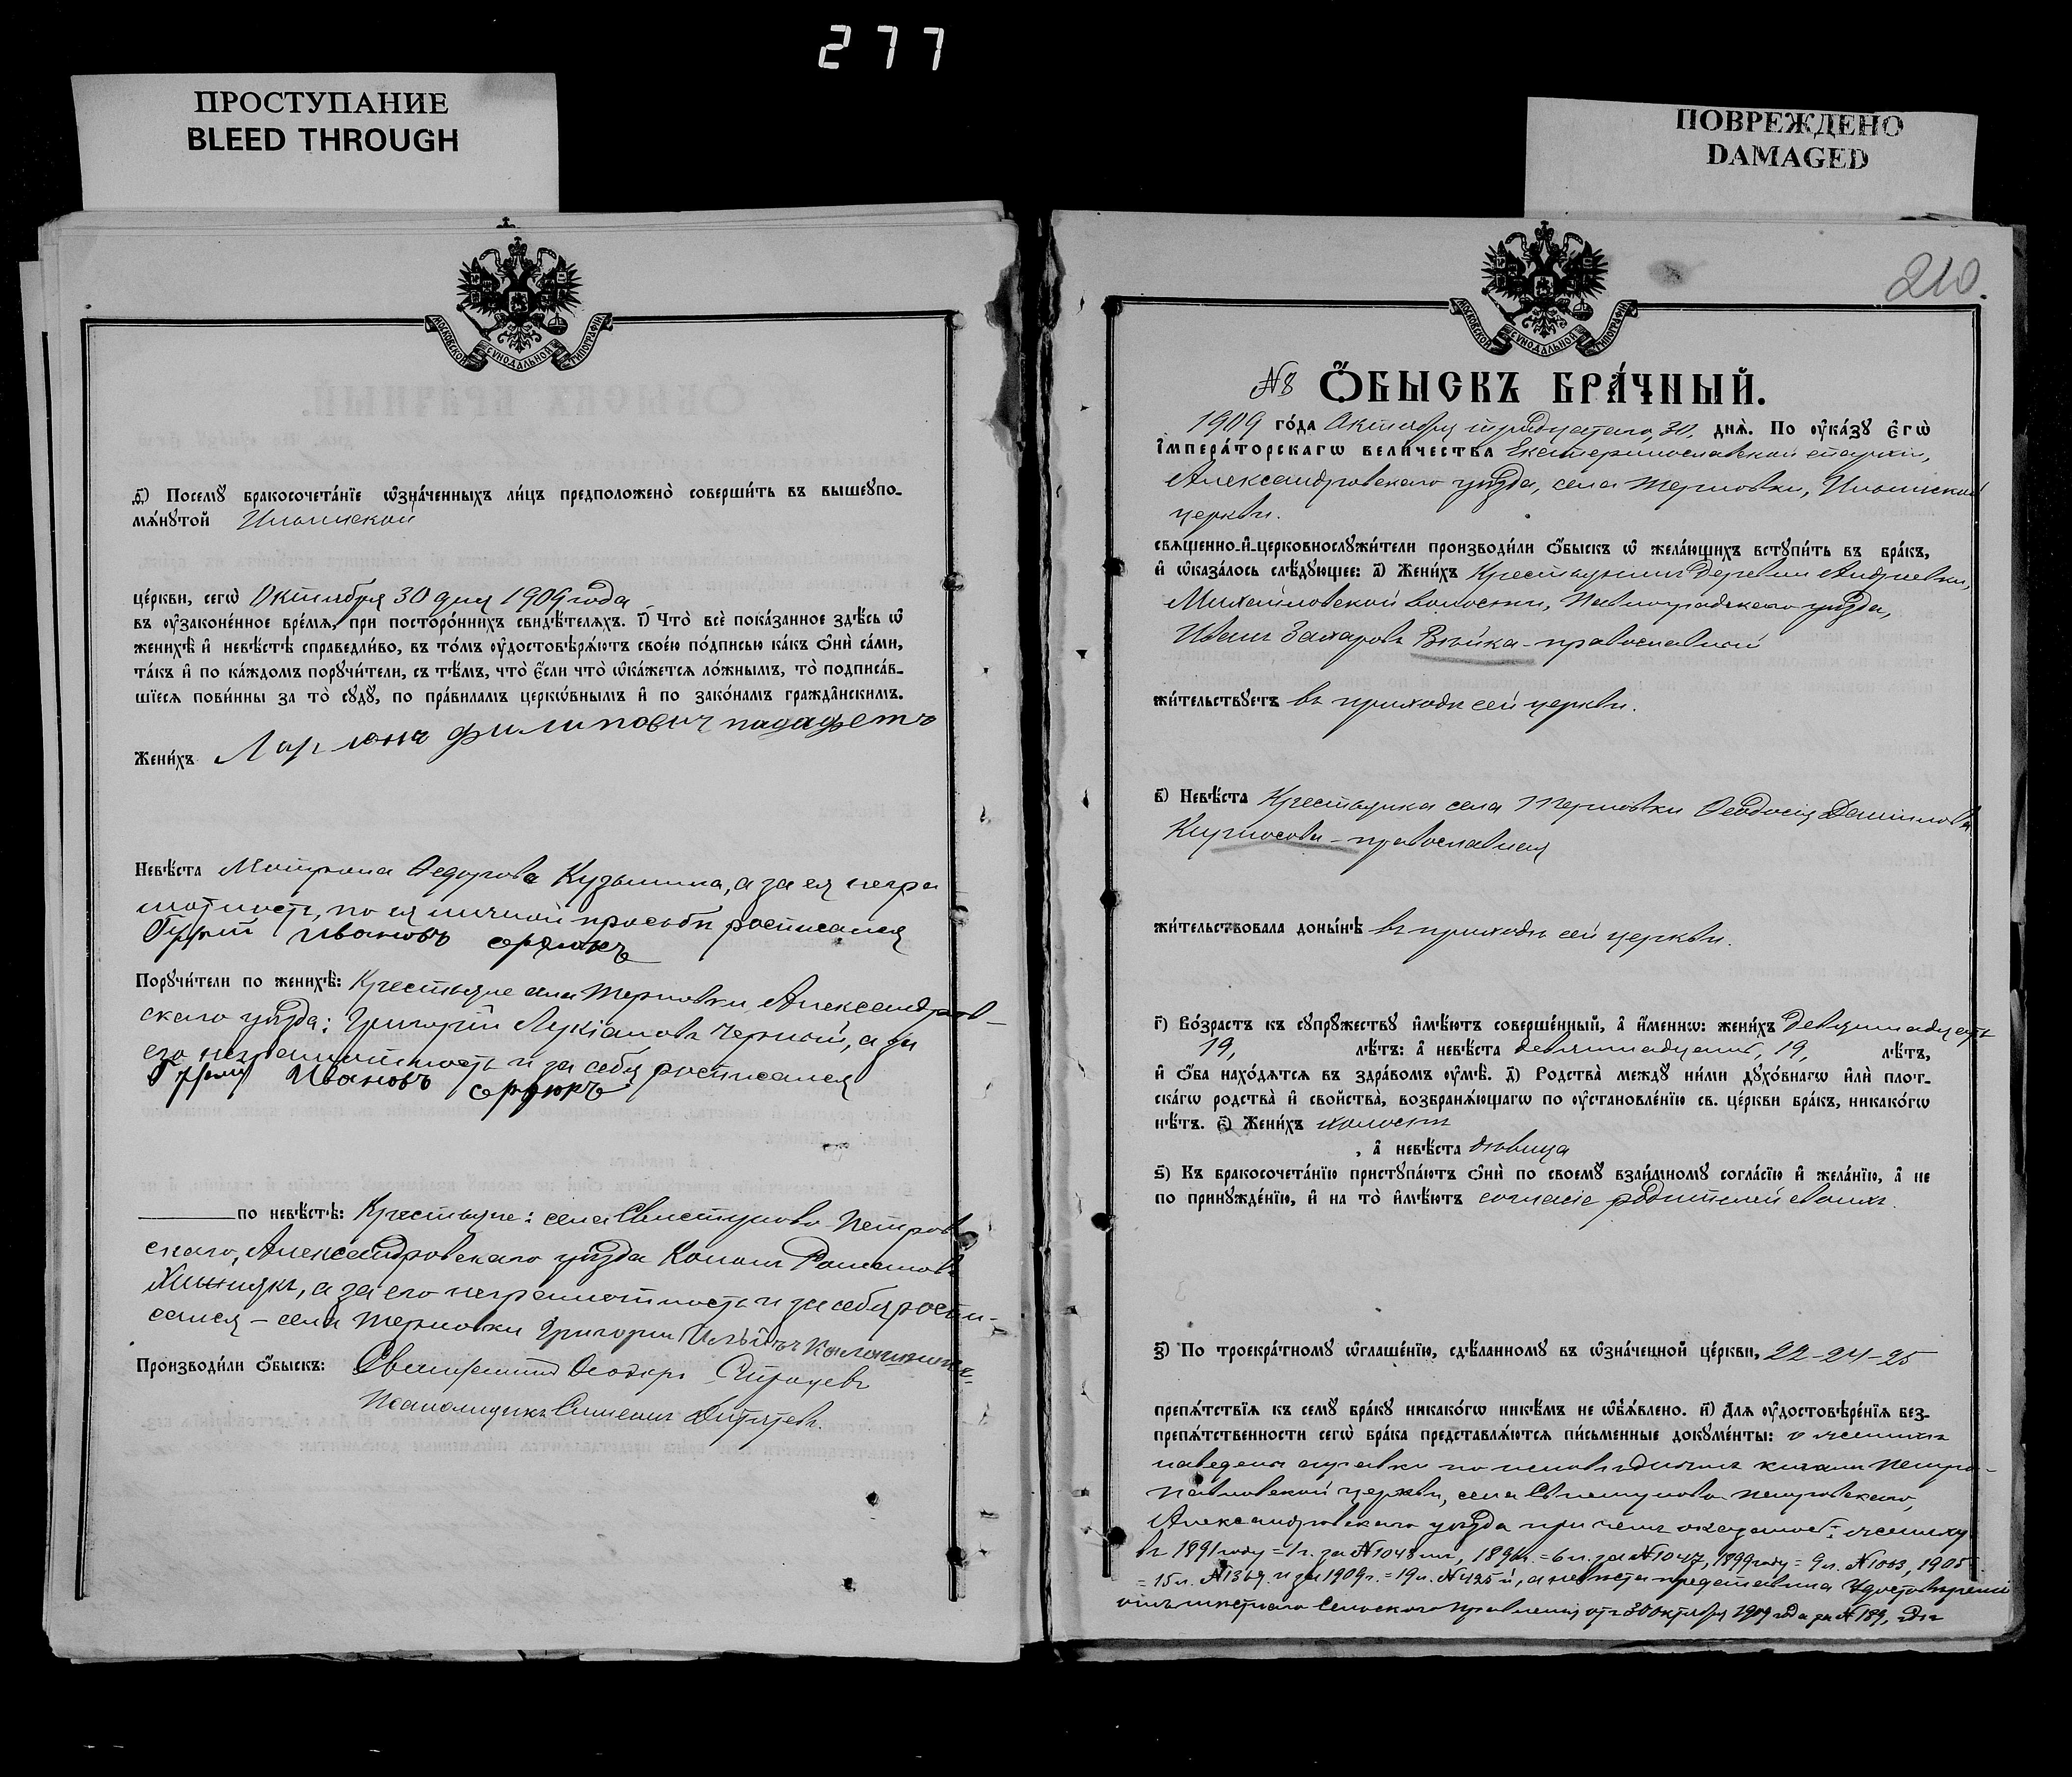 277
ПРОСТУПАНИЕ
BLEED THROUGH
ПОВРЕЖДЕНО
DAMAGED
МОСКОВСКОЙ СѴНОДАЛЬНОЙ ТИПОГРАФІИ
д҃) Посемꙋ̀ бракосочета́нїе ѡ҆зна́ченныхъ ли́цъ предположено̀ соверши́ть въ вышеꙋпо-
мѧ́нꙋтой Ильинской
це́ркви, сегѡ̀ Октября 30 дня 1909 года
въ ᲂу҆законе́нное вре́мѧ, при посторо́ннихъ свидѣ́телѧхъ. і҃) Что̀ всѐ пока́занное здѣ́сь ѡ҆
женихѣ̀ и҆ невѣ́стѣ справедли́во, въ то́мъ ᲂу҆достовѣрѧ́ютъ свое́ю по́дписью ка́къ ѻ҆нѝ са́ми,
та́къ и҆ по ка́ждомъ порꙋчи́тели, съ тѣ́мъ, что̀ є҆́сли что̀ ѡ҆ка́жетсѧ ло́жнымъ, то̀ подписа́в-
шїесѧ пови́нны за то̀ сꙋдꙋ̀, по пра́виламъ церко́внымъ и҆ по зако́намъ гражда́нскимъ.
Жени́хъ Филипович
Невѣ́ста Матрона Ѳедорова Кузьмина, а за ея негра
мотность, по ея личной просьбѣ росписался
Гурій Ивановъ сердюкъ
Порꙋчи́тели по женихѣ̀: Крестьяне села Терновки Александров-
скаго уѣзда: Григорій Лукіановъ Черный, а за
его неграмотность и за себя росписался
Гурій Ивановъ сердюкъ
по невѣ́стѣ: Крестьяне: села Свистуново-Петров
скаго, Александровскаго уѣзда Кононъ Романовъ
а за его неграмотность и за себя роспи-
сался - села Терновки Григорій Ильичъ
Производи́ли ѻ҆́быскъ: Священникъ Ѳеодоръ
Псаломщикъ Симеонъ
210.
МОСКОВСКОЙ СѴНОДАЛЬНОЙ ТИПОГРАФІИ
№8 Ѻ҆́БЫСКЪ БРА́ЧНЫЙ.
1909 го́да Октября тридцатаго, 30, днѧ̀. По ᲂу҆ка́зꙋ є҆гѡ̀
і҆мпера́торскагѡ вели́чества Екатеринославской епархіи,
Александровскаго уѣзда, села Терновки, Ильинской
церкви.
свѧще́нно-и҆-церковнослꙋжи́тели производи́ли ѻ҆́быскъ ѡ҆ жела́ющихъ встꙋпи́ть въ бра́къ,
и҆ ѡ҆каза́лось слѣ́дꙋющее: а҃) Жени́хъ Крестьянинъ деревни Андреевки,
Михайловской волости, Павлоградскаго уѣзда,
Иванъ Захаровъ Вюйка - православный
жи́тельствꙋетъ въ приходѣ сей церкви.
в҃) Невѣ́ста Крестьянка села Терновки Ѳеодосія Данилова
Кирносова - православная
жи́тельствовала доны́нѣ въ приходѣ сей церкви.
г҃) Во́зрастъ къ сꙋпрꙋ́жествꙋ и҆мѣ́ютъ соверше́нный, а҆ и҆́менно: жени́хъ девятнадцать
19, лѣ́тъ: а҆ невѣ́ста девятнадцать, 19, лѣ́тъ,
и҆ ѻ҆́ба нахо́дѧтсѧ въ здра́вомъ ᲂу҆мѣ̀. д҃) Родства̀ междꙋ̀ ни́ми дꙋхо́внагѡ и҆лѝ плот-
ска́гѡ родства̀ и҆ свойства̀, возбранѧ́ющагѡ по ᲂу҆становле́нїю св. це́ркви бра́къ, никако́гѡ
нѣ́тъ. є҃) Жени́хъ холостъ
, а҆ невѣ́ста дѣвица
ѕ҃) Къ бракосочета́нїю пристꙋпа́ютъ ѻ҆нѝ по своемꙋ̀ взаи́мномꙋ согла́сїю и҆ жела́нїю, а҆ не
по принꙋжде́нїю, и҆ на то̀ и҆мѣ́ютъ согласіе родителей своихъ.
з҃) По троекра́тномꙋ ѡ҆глаше́нїю, сдѣ́ланномꙋ въ ѡ҆зна́ченной це́ркви, 22-24-25
препѧ́тствїѧ къ семꙋ̀ бра́кꙋ никако́гѡ никѣ́мъ не ѡ҆б̾ѧ́влено. и҃) Длѧ ᲂу҆достовѣре́нїѧ без-
препѧ́тственности сегѡ̀ бра́ка представлѧ́ютсѧ пи́сьменные докꙋме́нты: о женихѣ
наведены справки по исповѣднымъ книгамъ Петро-
павловской церкви, села Свистуново-Петровскаго,
Александровскаго уѣзда при чемъ оказалось: жениху
въ 1891 году = 1 г. за №1048 1896 г. = 6 л. за №1047, 1899 году = 9 л. №1003, 1905
= 15 л. №1369. и за 1909 г. = 19 л. №425 й, а невѣста представила Удостовѣреніе
отъ мѣстнаго Сельскаго правленія отъ 30 октября 1909 года за №189, гдѣ